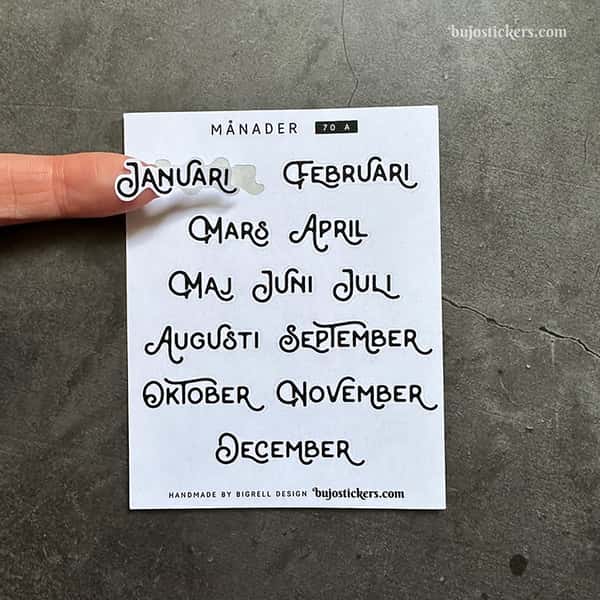 bujostickers.com
MÅNADER 70 A
JANUARI FEBRUARI
MARS APRIL
MAJ JUNI JULI
AUGUSTI SEPTEMBER
OKTOBER NOVEMBER
DECEMBER
HANDMADE BY BIGRELL DESIGN bujostickers.com